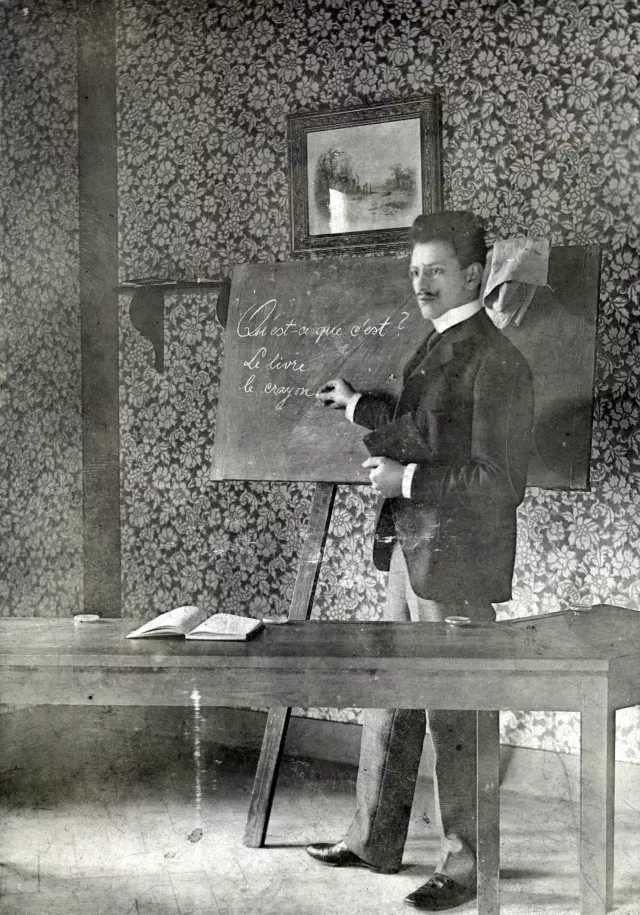 Qu'est-ce que c'est?
Le livre
le crayon